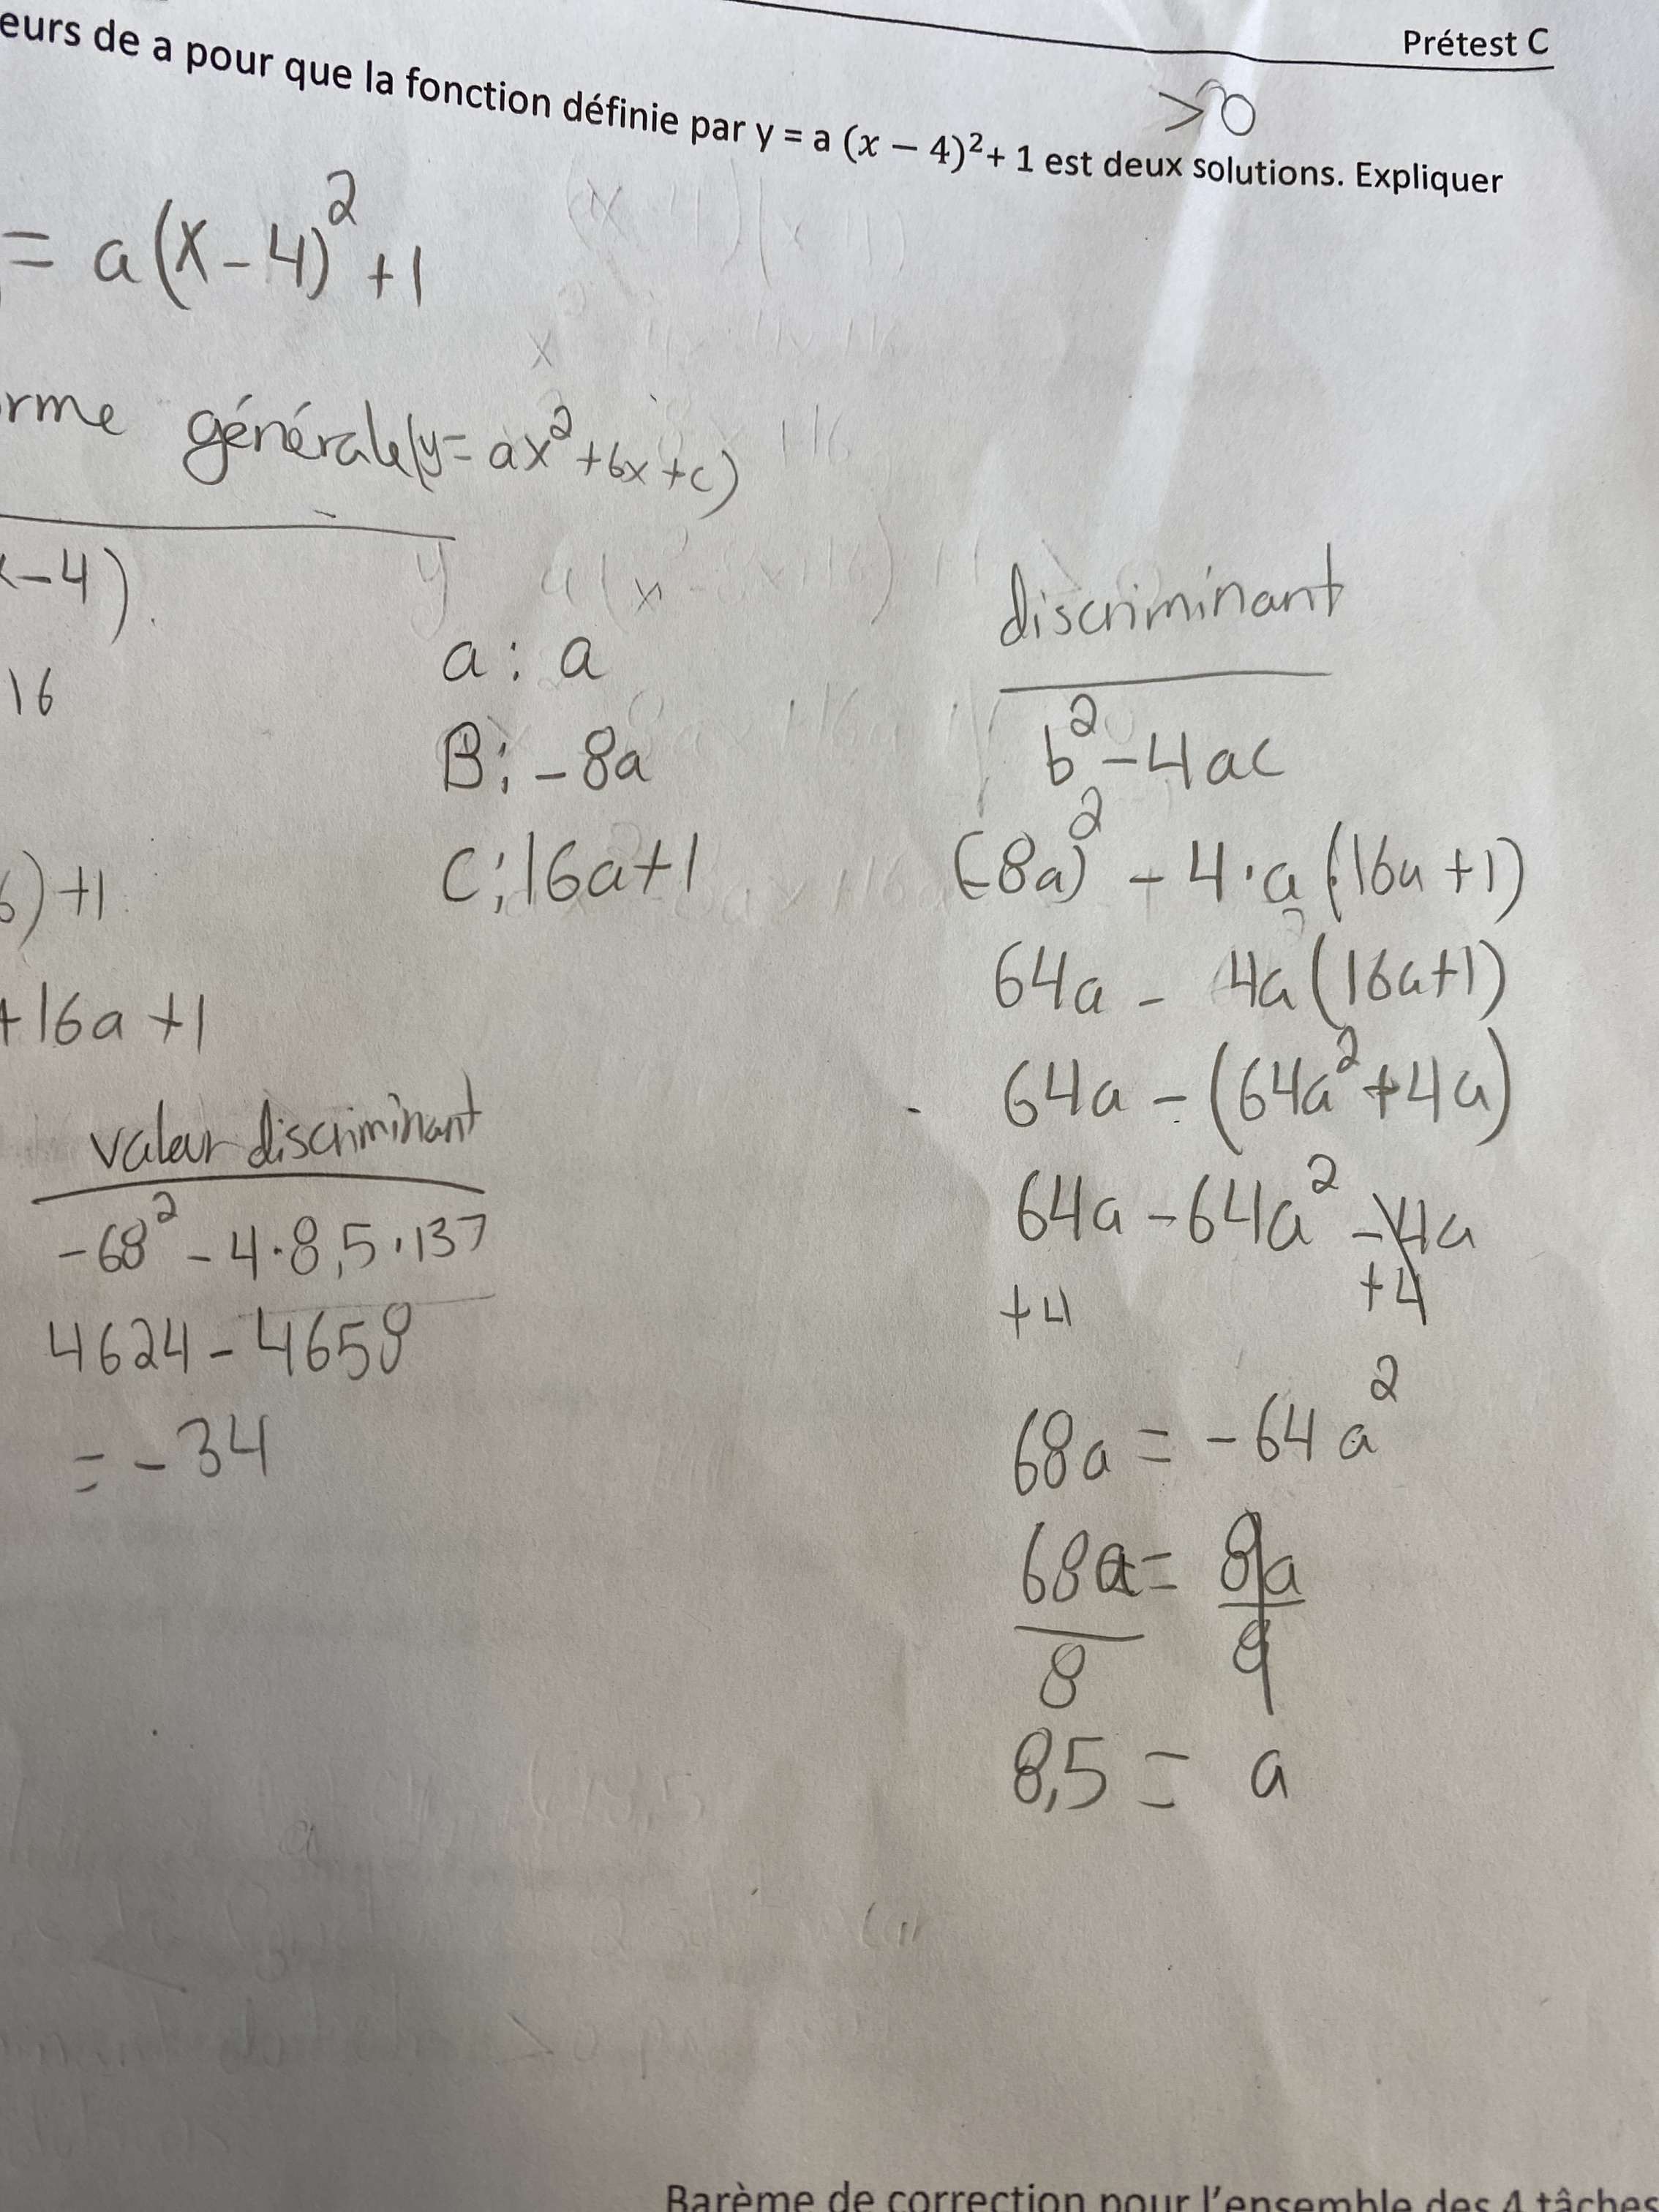 Prétest C
eurs de a pour que la fonction définie par y = a (x − 4)²+ 1 est deux solutions. Expliquer
>0
= a(x-4)² +1
rme générale(y= ax²+bx+c)
x-4).
16
6)+1
+16a +1
a : a
B: -8a
C: 16a+1
discriminant
b²-4ac
(-8a)² - 4·a(16a+1)
64a - 4a(16a+1)
64a - (64a²+4a)
64a -64a² -4a
+4 +4
68a = -64a²
68a = 8a
8 8
8,5 = a
valeur discriminant
-68² - 4·8,5·137
4624-4658
= -34
Barème de correction pour l'ensemble des 4 tâches